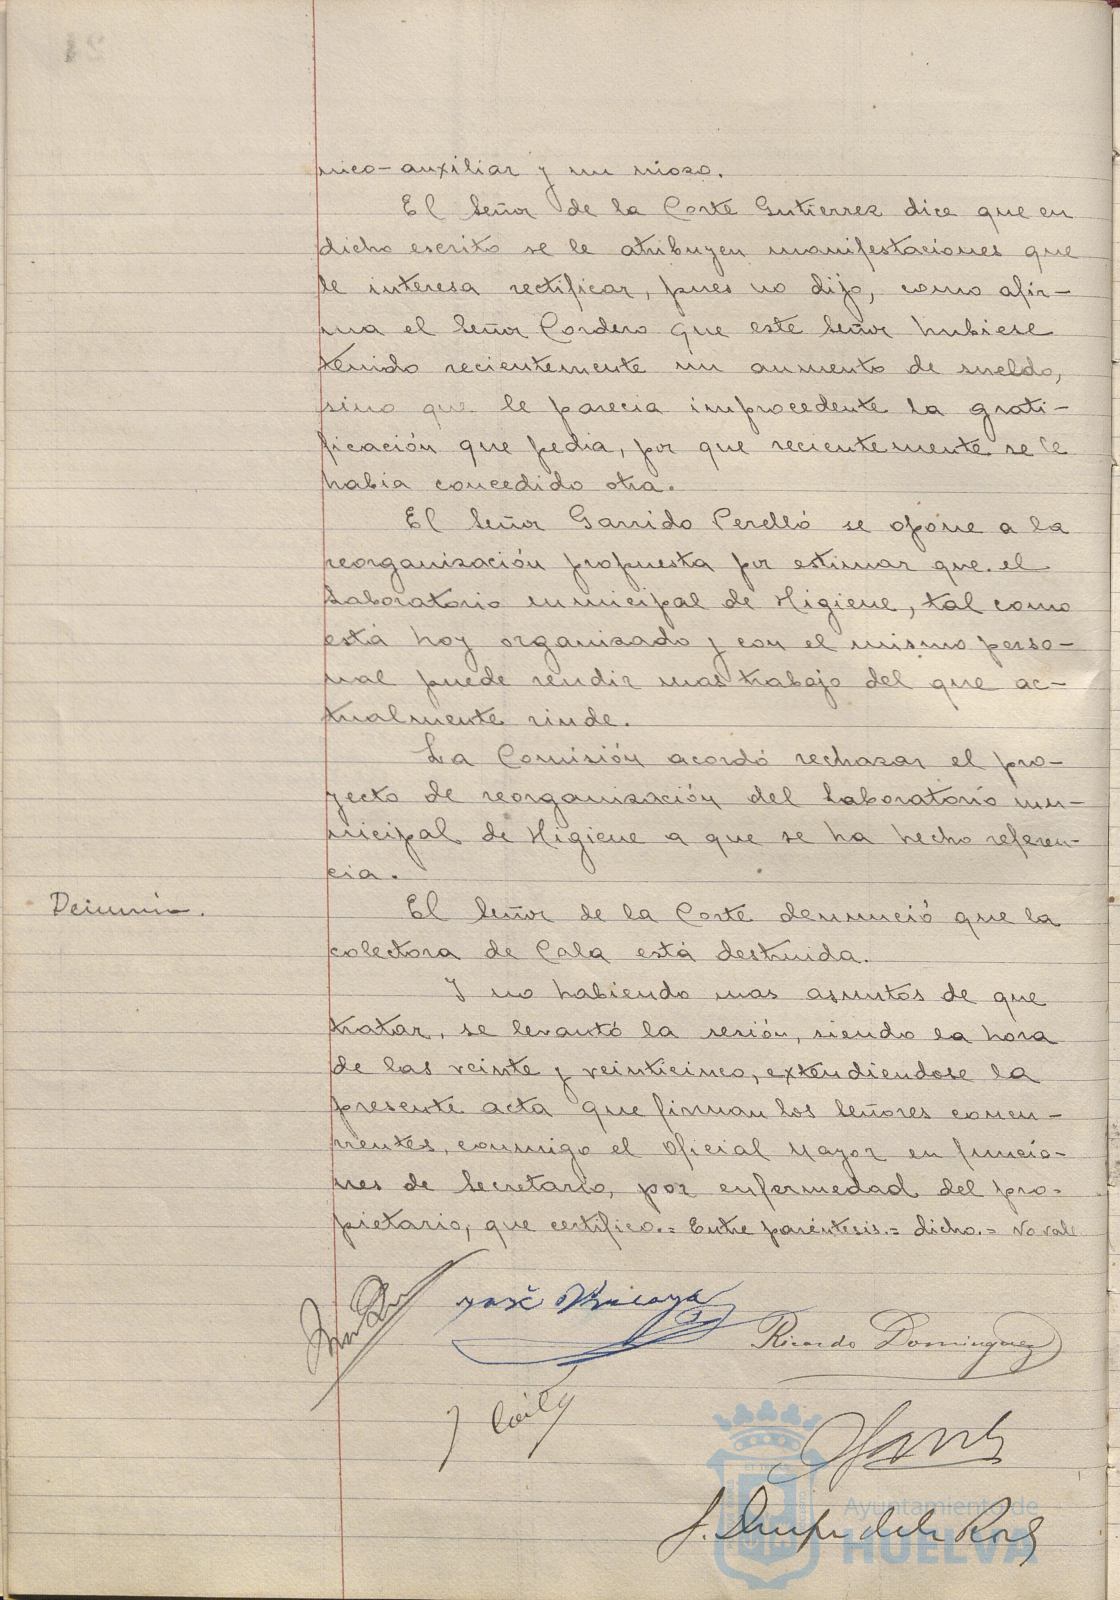 nico-auxiliar y un mozo.
El Señor de la Corte Gutierrez dice que en
dicho escrito se le atribuyen manifestaciones que
le interesa rectificar, pues no dijo, como afir-
ma el Señor Cordero que este Señor hubiese
tenido recientemente un aumento de sueldo,
sino que le parecia improcedente la grati-
ficación que pedia, por que recientemente se le
habia concedido otra.
El Señor Garrido Perelló se opone a la
reorganización propuesta por estimar que el
Laboratorio municipal de Higiene, tal como
está hoy organizado y con el mismo perso-
nal puede rendir mas trabajo del que ac-
tualmente rinde.
La Comisión acordó rechazar el pro-
yecto de reorganización del Laboratorio mu-
nicipal de Higiene a que se ha hecho referen-
cia.
Denuncia.
El Señor de la Corte denunció que la
colectora de Cala está destruida.
Y no habiendo mas asuntos de que
tratar, se levantó la sesión, siendo la hora
de las veinte y veinticinco, extendiendose la
presente acta que firman los Señores concu-
rrentes, conmigo el Oficial Mayor en funcio-
nes de Secretario, por enfermedad del pro-
pietario, que certifico.= Entre paréntesis.= dicho.= No vale
José
Ricardo Dominguez
Ayuntamiento de
HUELVA